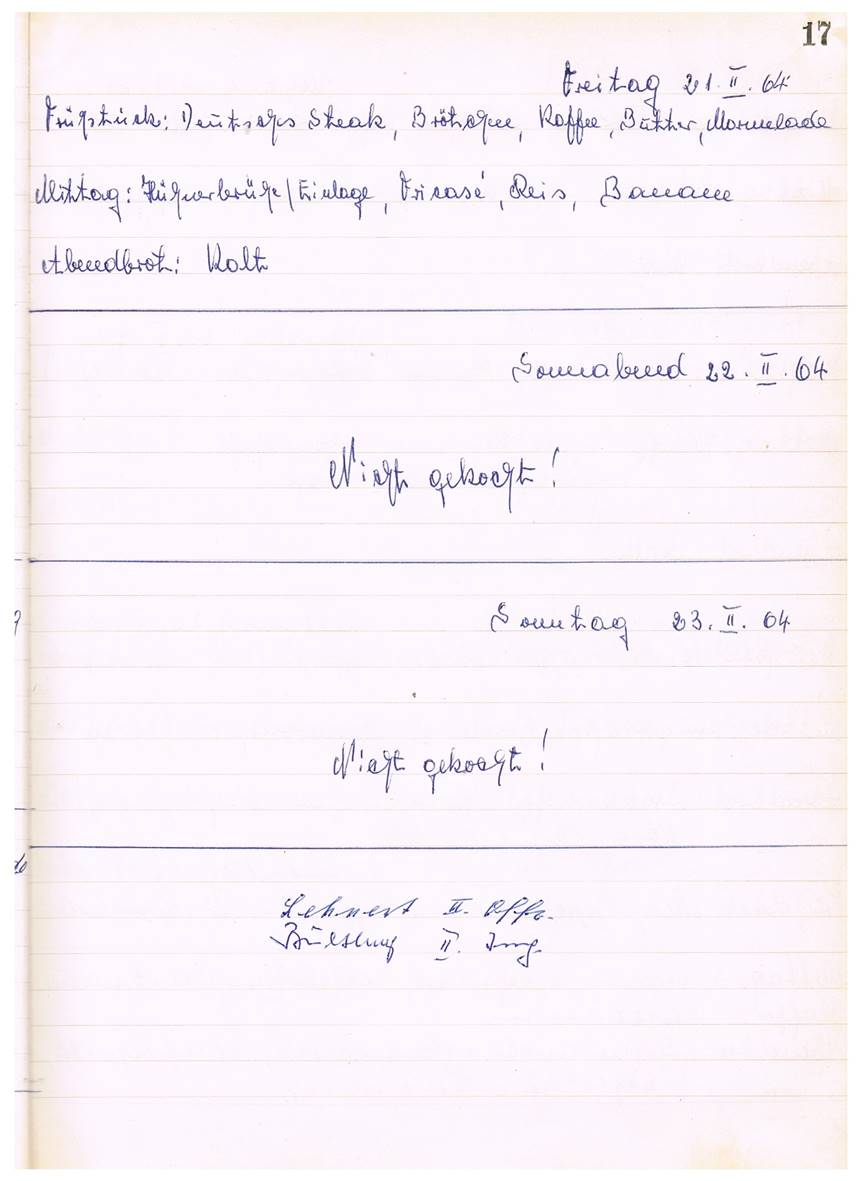 17
Freitag 21. II. 64
Frühstück: Deutsches Steak, Brötchen, Kaffee, Butter, Marmelade
Mittag: Hühnerbrühe/Einlage, Fricasé, Reis, Banane
Abendbrot: Kalt
Sonnabend 22. II. 64
Nicht gekocht!
Sonntag 23. II. 64
Nicht gekocht!
Lehnert II. Offz.
II. Ing.